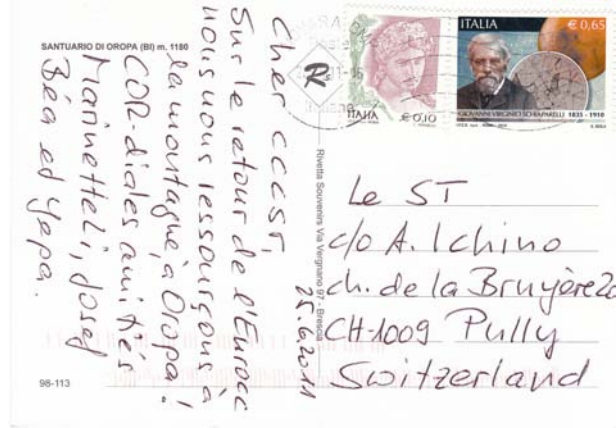 SANTUARIO DI OROPA (BI) m. 1180
Cher CCCST,
Sur le retour de l'Erocc
nous nous ressourçons à
la montagne, à Oropa !
COR-diales amitiés
Marinetteli, Josef
Béa et Yepa.
98-113
Rivetta Souvenirs Via Vergnano 97 - Brescia
25.6.2011
R
ITALIA
€0,10
ITALIA
€ 0,65
GIOVANNI VIRGINIO SCHIAPARELLI 1835 - 1910
Le ST
c/o A. Ichino
ch. de la Bruyère 20
CH-1009 Pully
Switzerland